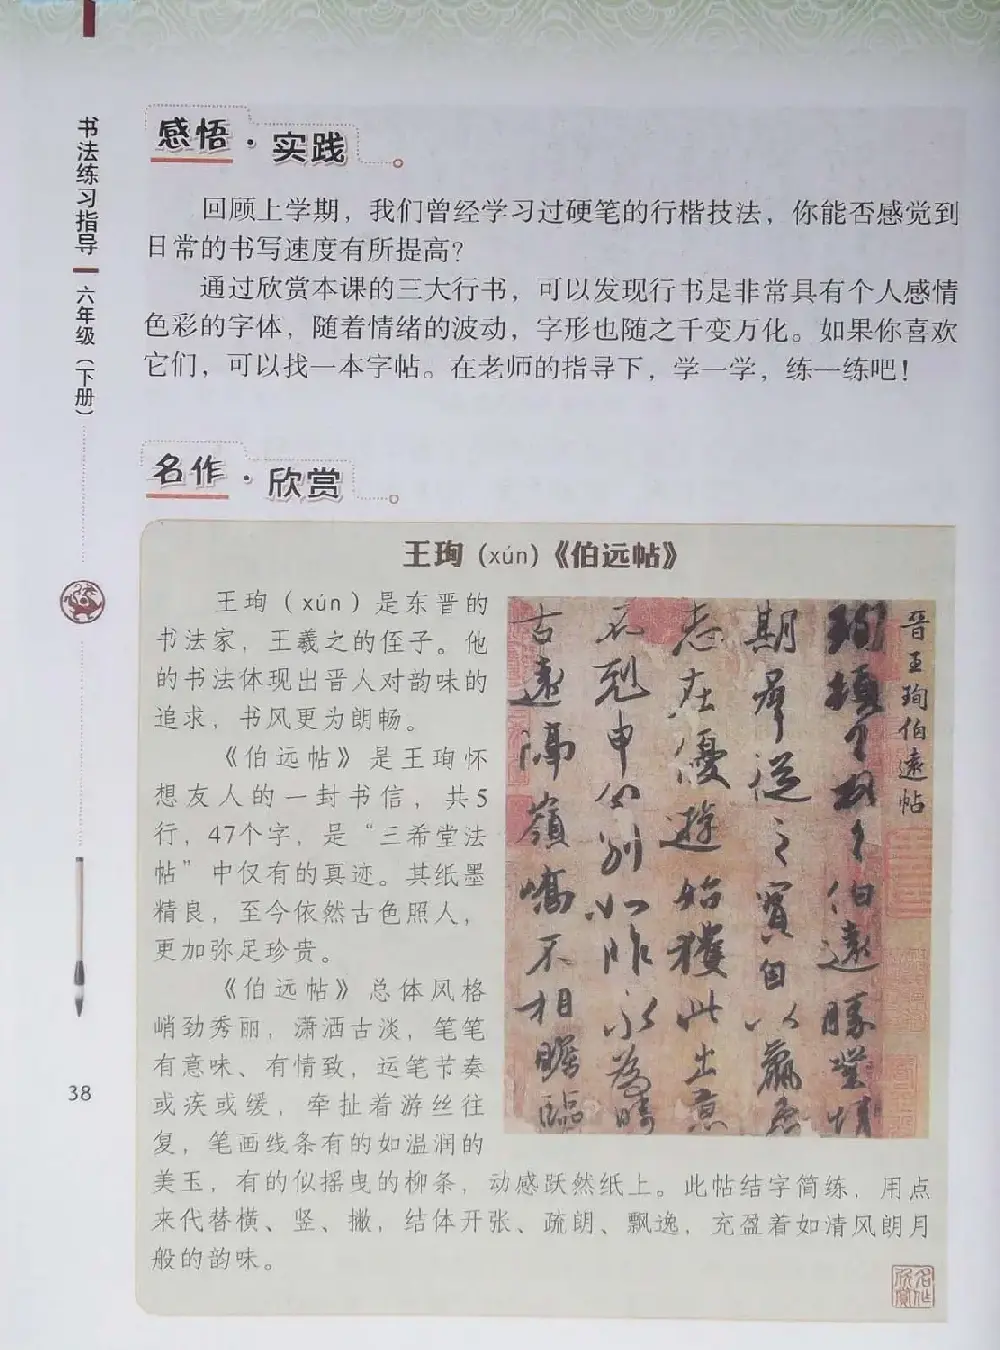 书法练习指导
六年级（下册）
38
感悟·实践
回顾上学期，我们曾经学习过硬笔的行楷技法，你能否感觉到
日常的书写速度有所提高？
通过欣赏本课的三大行书，可以发现行书是非常具有个人感情
色彩的字体，随着情绪的波动，字形也随之千变万化。如果你喜欢
它们，可以找一本字帖。在老师的指导下，学一学，练一练吧！
名作·欣赏
王珣（xún）《伯远帖》
王珣（xún）是东晋的
书法家，王羲之的侄子。他
的书法体现出晋人对韵味的
追求，书风更为朗畅。
《伯远帖》是王珣怀
想友人的一封书信，共5
行，47个字，是“三希堂法
帖”中仅有的真迹。其纸墨
精良，至今依然古色照人，
更加弥足珍贵。
《伯远帖》总体风格
峭劲秀丽，潇洒古淡，笔笔
有意味、有情致，运笔节奏
或疾或缓，牵扯着游丝往
复，笔画线条有的如温润的
美玉，有的似摇曳的柳条，动感跃然纸上。此帖结字简练，用点
来代替横、竖、撇，结体开张、疏朗、飘逸，充盈着如清风朗月
般的韵味。
晋王珣伯遠帖
珣頓首頓首伯遠勝業情
期群從之寶自以羸患
志在優遊始獲此出意
不剋申分别如昨永為疇
古遠隔嶺嶠不相瞻臨
名作欣赏